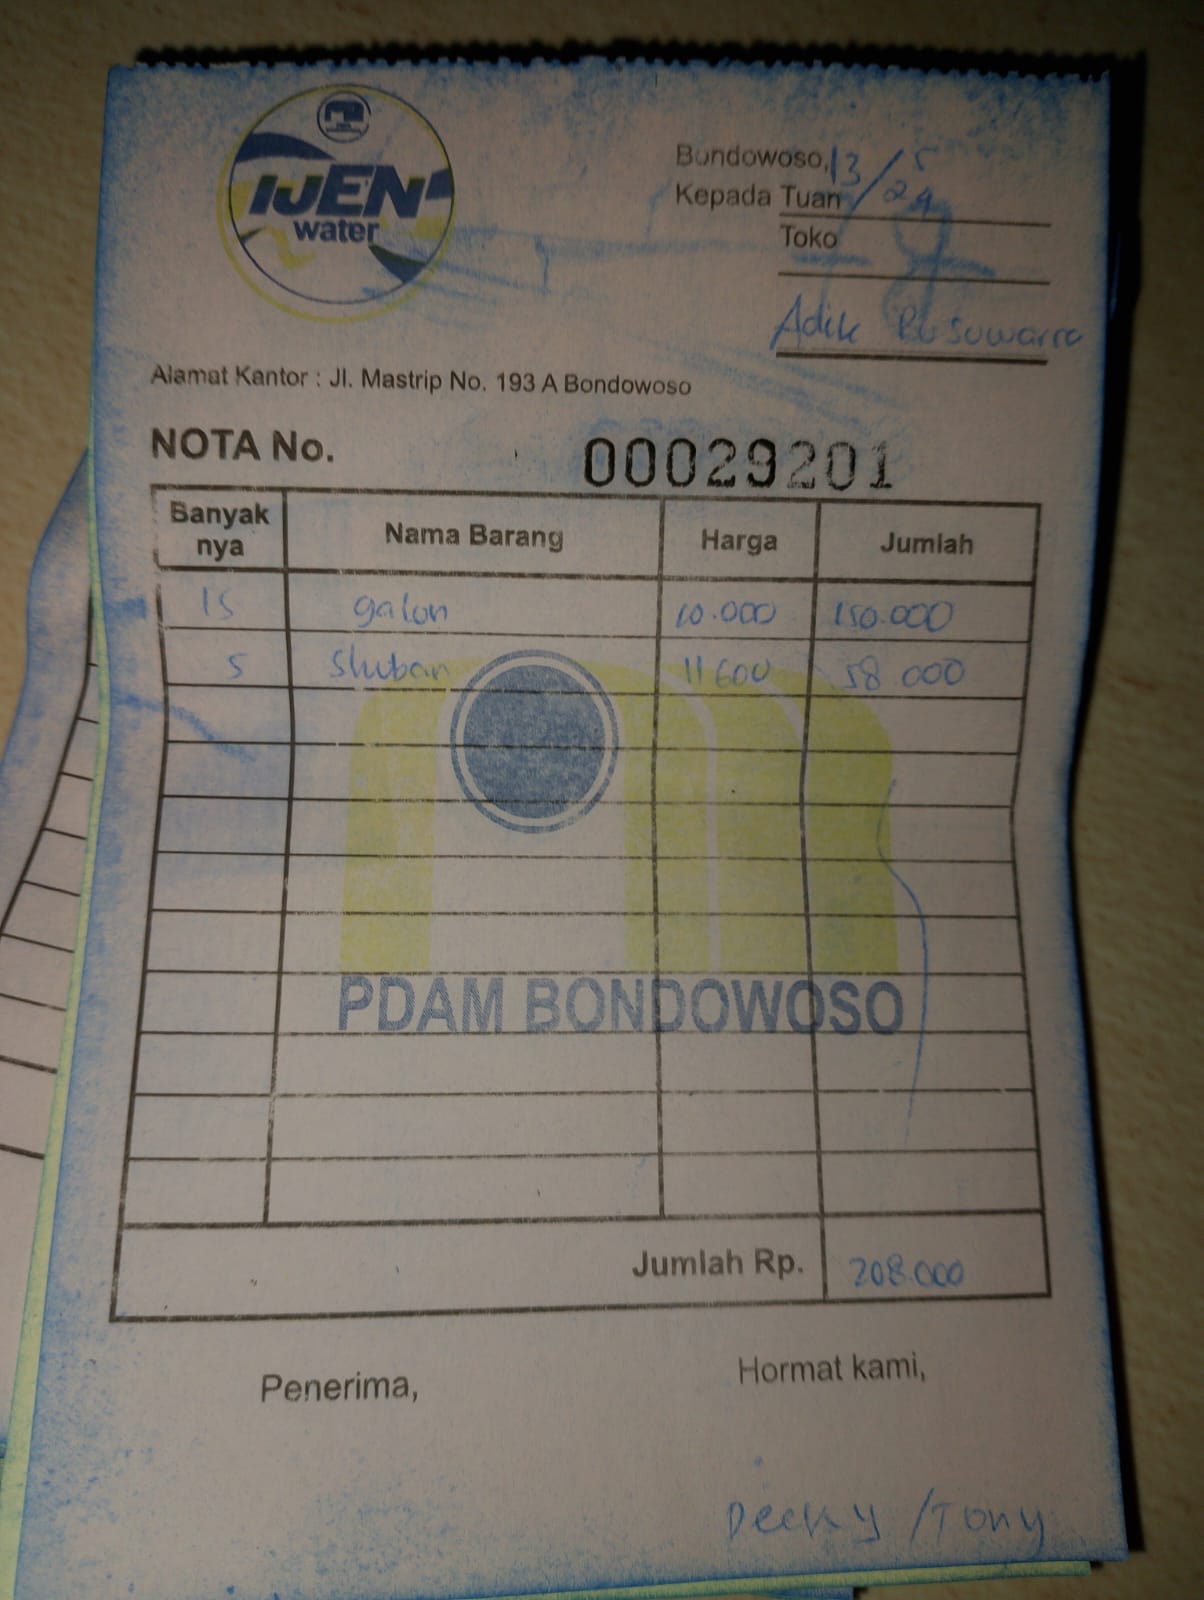 IJEN
water
Bondowoso, 13/5
Kepada Tuan 24
Toko
Adik Bu Suwarno
Alamat Kantor : Jl. Mastrip No. 193 A Bondowoso
NOTA No. 00029201
Banyak nya Nama Barang Harga Jumlah
15 galon 10.000 150.000
5 11600 58.000
PDAM BONDOWOSO
Jumlah Rp. 208.000
Penerima, Hormat kami,
Decky / Tony